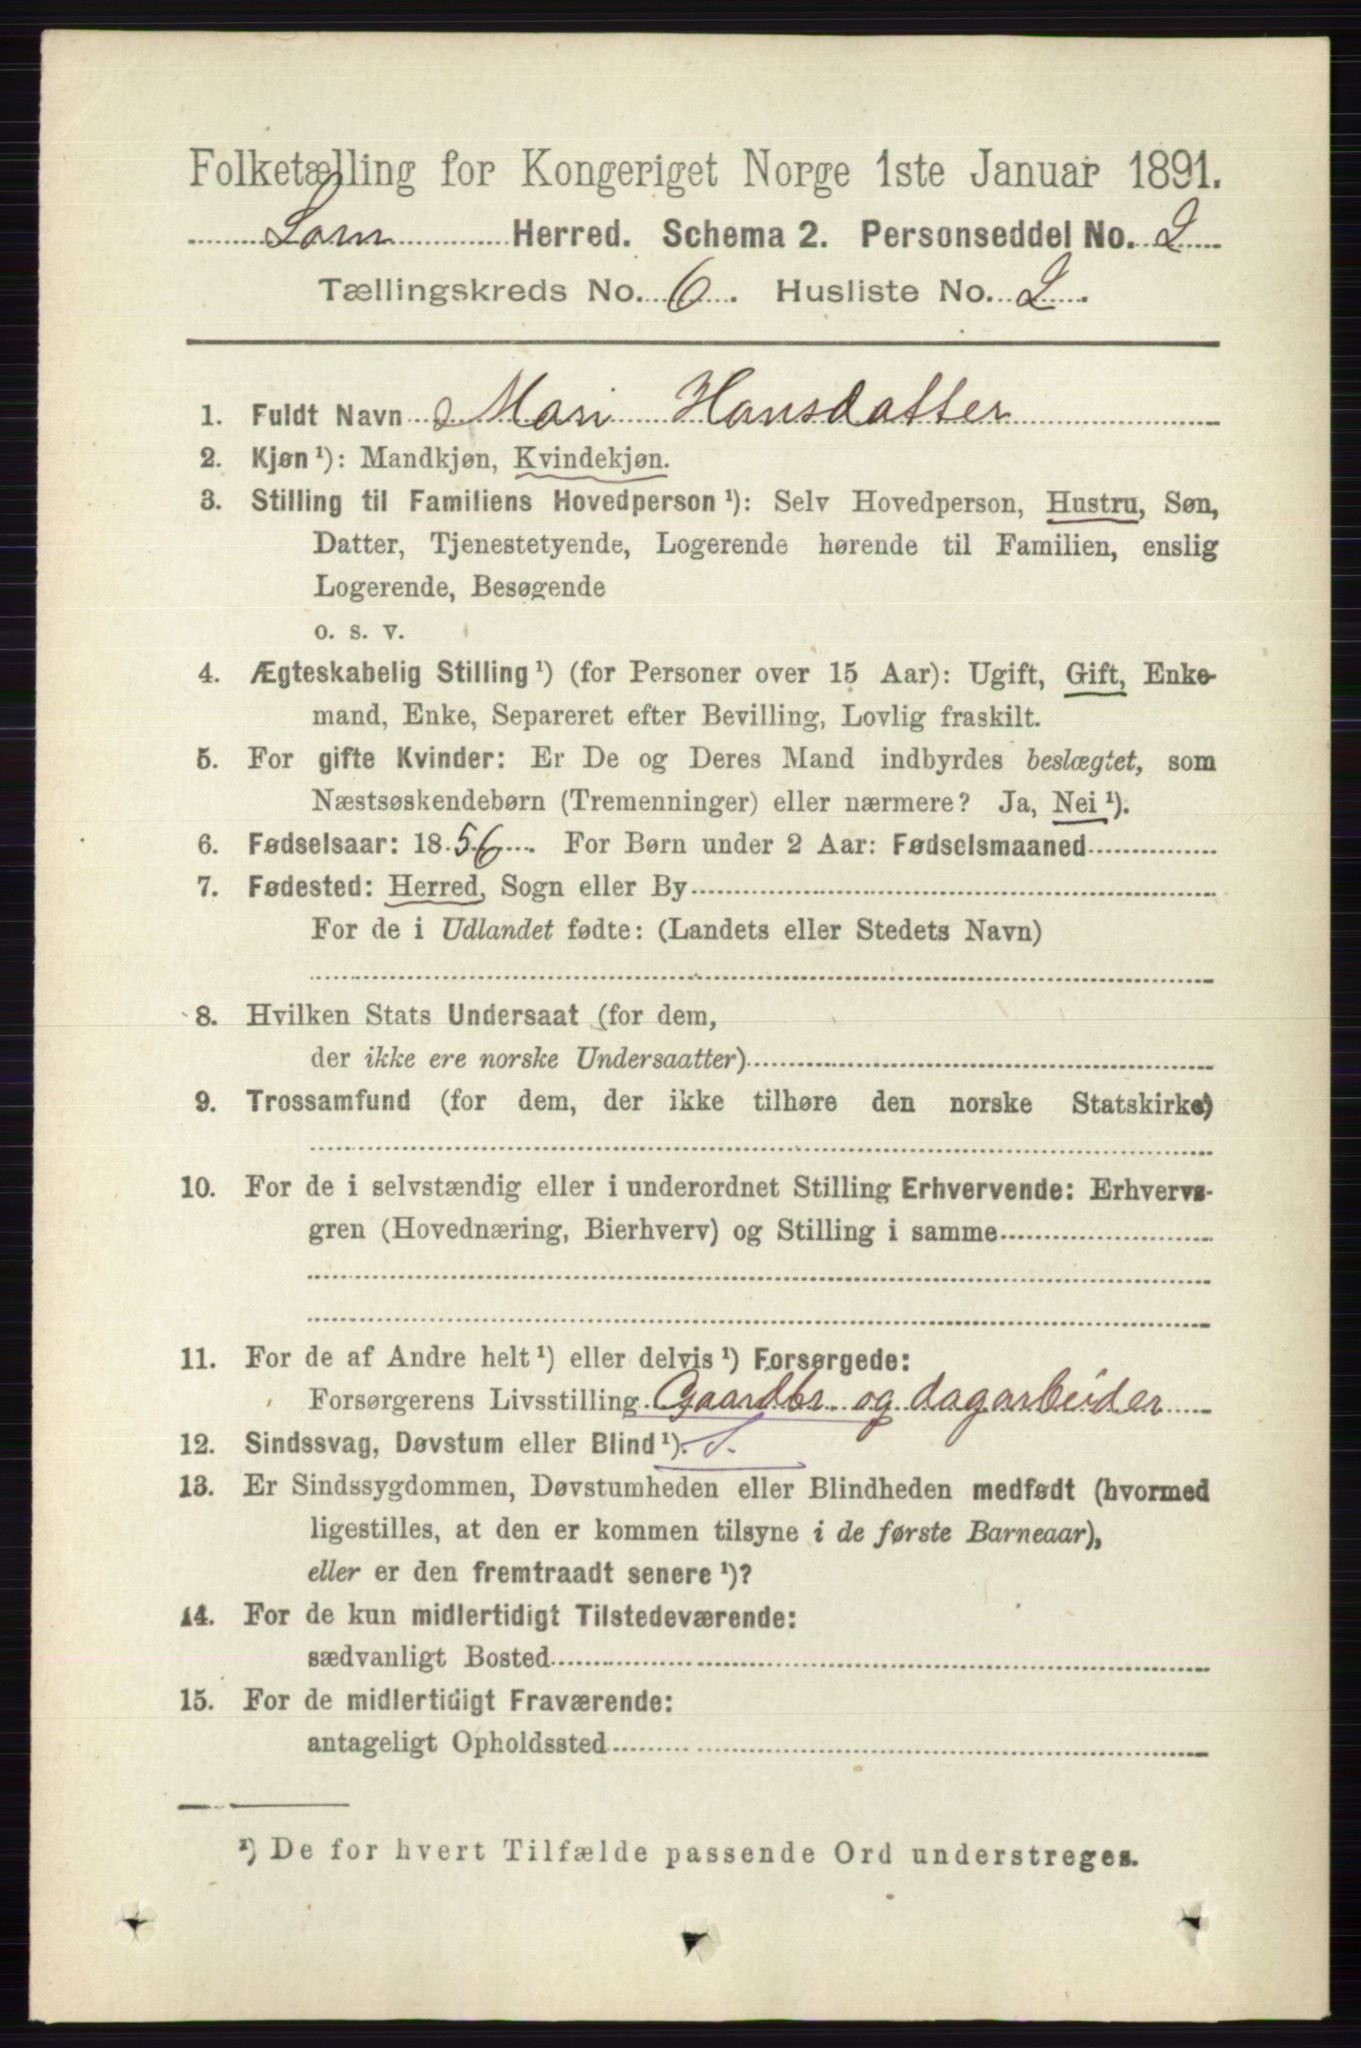 Folketælling for Kongeriget Norge 1ste Januar 1891.
Lom Herred. Schema 2. Personseddel No. 2
Tællingskreds No. 6. Husliste No. 2.
1. Fuldt Navn Mari Hansdatter
2. Kjøn ¹): Mandkjøn, Kvindekjøn.
3. Stilling til Familiens Hovedperson ¹): Selv Hovedperson, Hustru, Søn,
Datter, Tjenestetyende, Logerende hørende til Familien, enslig
Logerende, Besøgende
o. s. v.
4. Ægteskabelig Stilling ¹) (for Personer over 15 Aar): Ugift, Gift, Enke-
mand, Enke, Separeret efter Bevilling, Lovlig fraskilt.
5. For gifte Kvinder: Er De og Deres Mand indbyrdes beslægtet, som
Næstsøskendebørn (Tremenninger) eller nærmere? Ja, Nei ¹).
6. Fødselsaar: 1856. For Børn under 2 Aar: Fødselsmaaned
7. Fødested: Herred, Sogn eller By
For de i Udlandet fødte: (Landets eller Stedets Navn)
8. Hvilken Stats Undersaat (for dem,
der ikke ere norske Undersaatter)
9. Trossamfund (for dem, der ikke tilhøre den norske Statskirke)
10. For de i selvstændig eller i underordnet Stilling Erhvervende: Erhvervs-
gren (Hovednæring, Bierhverv) og Stilling i samme
11. For de af Andre helt ¹) eller delvis ¹) Forsørgede:
Forsørgerens Livsstilling Gaardbr. og dagarbeider
12. Sindssvag, Døvstum eller Blind ¹).
13. Er Sindssygdommen, Døvstumheden eller Blindheden medfødt (hvormed
ligestilles, at den er kommen tilsyne i de første Barneaar),
eller er den fremtraadt senere ¹)?
14. For de kun midlertidigt Tilstedeværende:
sædvanligt Bosted
15. For de midlertidigt Fraværende:
antageligt Opholdssted
¹) De for hvert Tilfælde passende Ord understreges.